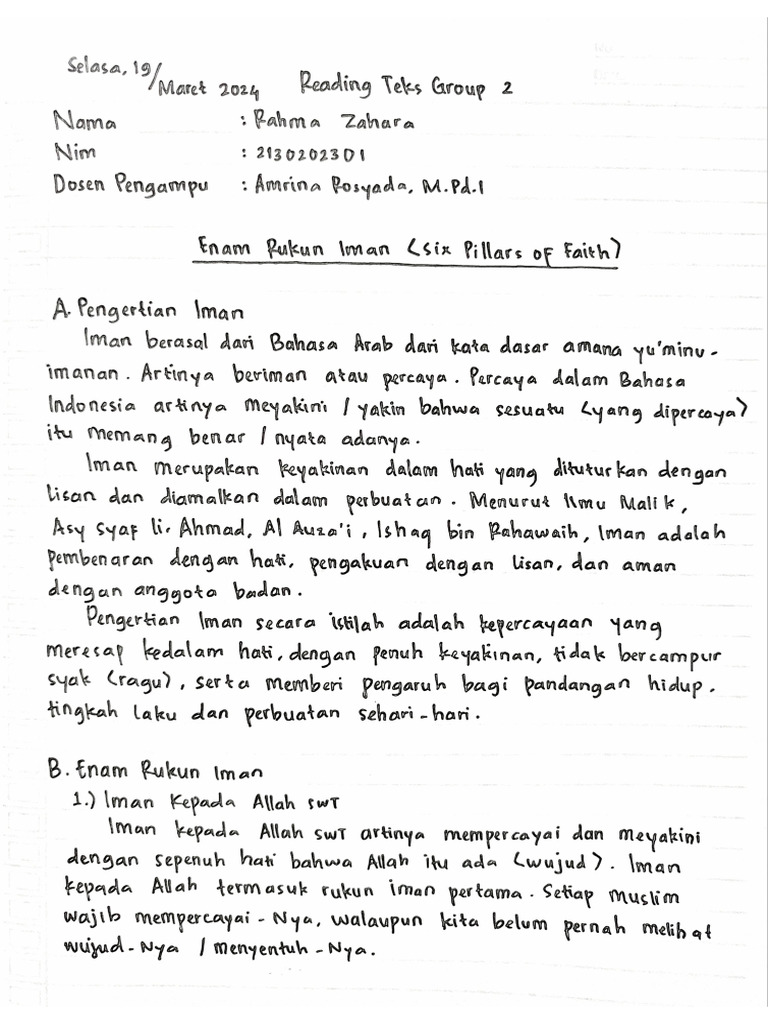 Selasa, 19/Maret 2024 Reading Teks Group 2
Nama : Rahma Zahara
Nim : 2130202301
Dosen Pengampu : Amrina Rosyada, M.Pd.I
Enam Rukun Iman (Six Pillars of Faith)
A. Pengertian Iman
Iman berasal dari Bahasa Arab dari kata dasar amana yu'minu-
imanan. Artinya beriman atau percaya. Percaya dalam Bahasa
Indonesia artinya meyakini / yakin bahwa sesuatu (yang dipercaya)
itu memang benar / nyata adanya.
Iman merupakan keyakinan dalam hati yang dituturkan dengan
lisan dan diamalkan dalam perbuatan. Menurut Ilmu Malik,
Asy Syaf li. Ahmad, Al Auza'i, Ishaq bin Rahawaih, Iman adalah
pembenaran dengan hati, pengakuan dengan lisan, dan aman
dengan anggota badan.
Pengertian Iman secara istilah adalah kepercayaan yang
meresap kedalam hati, dengan penuh keyakinan, tidak bercampur
syak (ragu), serta memberi pengaruh bagi pandangan hidup.
tingkah laku dan perbuatan sehari-hari.
B. Enam Rukun Iman
1.) Iman Kepada Allah SWT
Iman kepada Allah SWT artinya mempercayai dan meyakini
dengan sepenuh hati bahwa Allah itu ada (wujud). Iman
kepada Allah termasuk rukun iman pertama. Setiap Muslim
wajib mempercayai-Nya, walaupun kita belum pernah melihat
wujud-Nya / menyentuh-Nya.